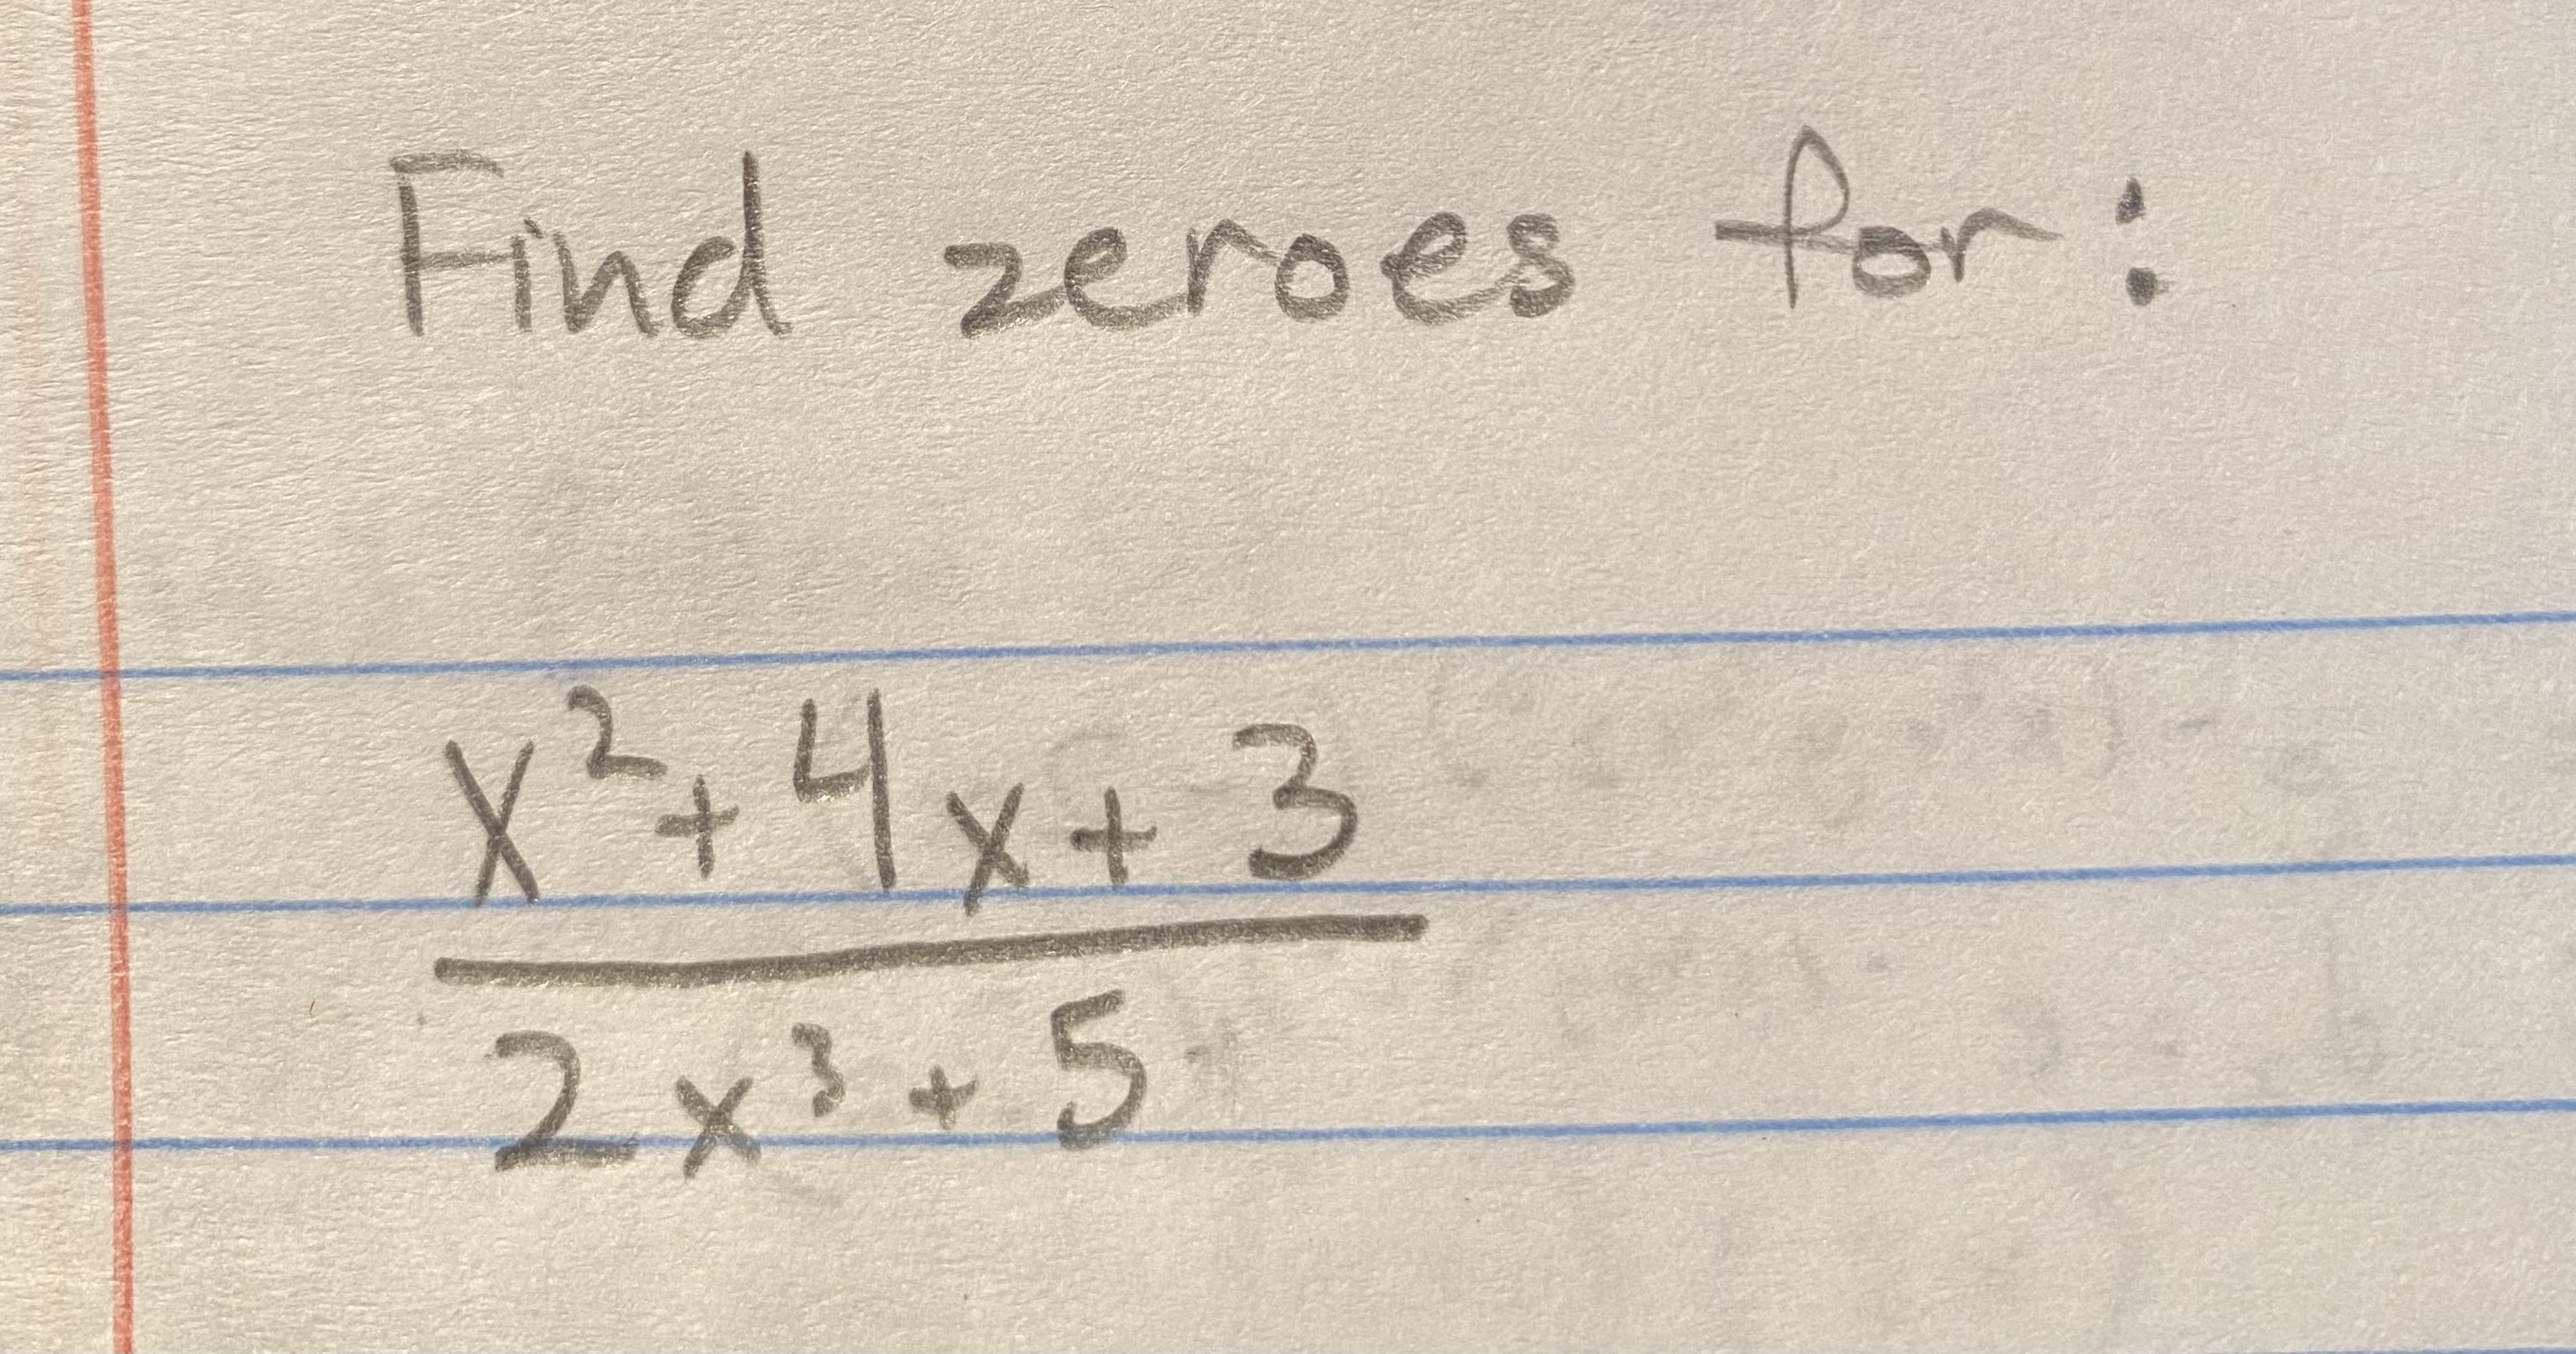 Find zeroes for:
x²+4x+3
2x³+5